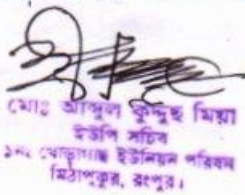 মোঃ আব্দুল কুদ্দুছ মিয়া
ইউপি সচিব
১নং খোড়াগাছ ইউনিয়ন পরিষদ
মিঠাপুকুর, রংপুর।